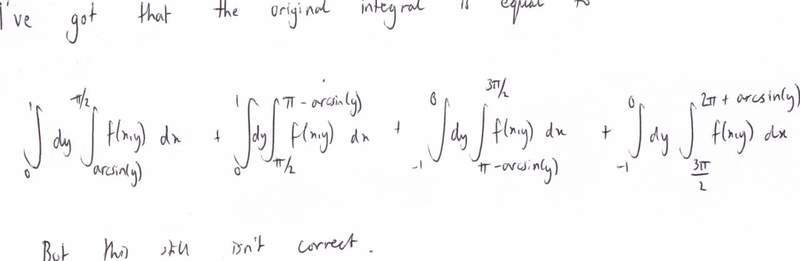 I've got that the original integral is equal to
∫₀¹ dy ∫_{arcsin(y)}^{π/2} f(x,y) dx + ∫₀¹ dy ∫_{π/2}^{π - arcsin(y)} f(x,y) dx + ∫₋₁⁰ dy ∫_{π - arcsin(y)}^{3π/2} f(x,y) dx + ∫₋₁⁰ dy ∫_{3π/2}^{2π + arcsin(y)} f(x,y) dx
But this still isn't correct.